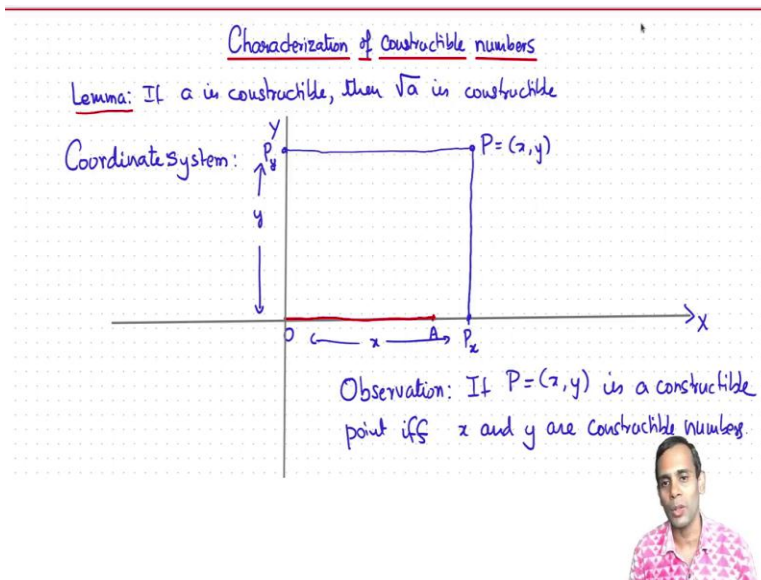 Characterization of constructible numbers
Lemma: If a is constructible, then √a is constructible
Y
Coordinate system: P_y P=(x,y)
y
O x A P_x X
Observation: If P=(x,y) is a constructible
point iff x and y are constructible numbers.